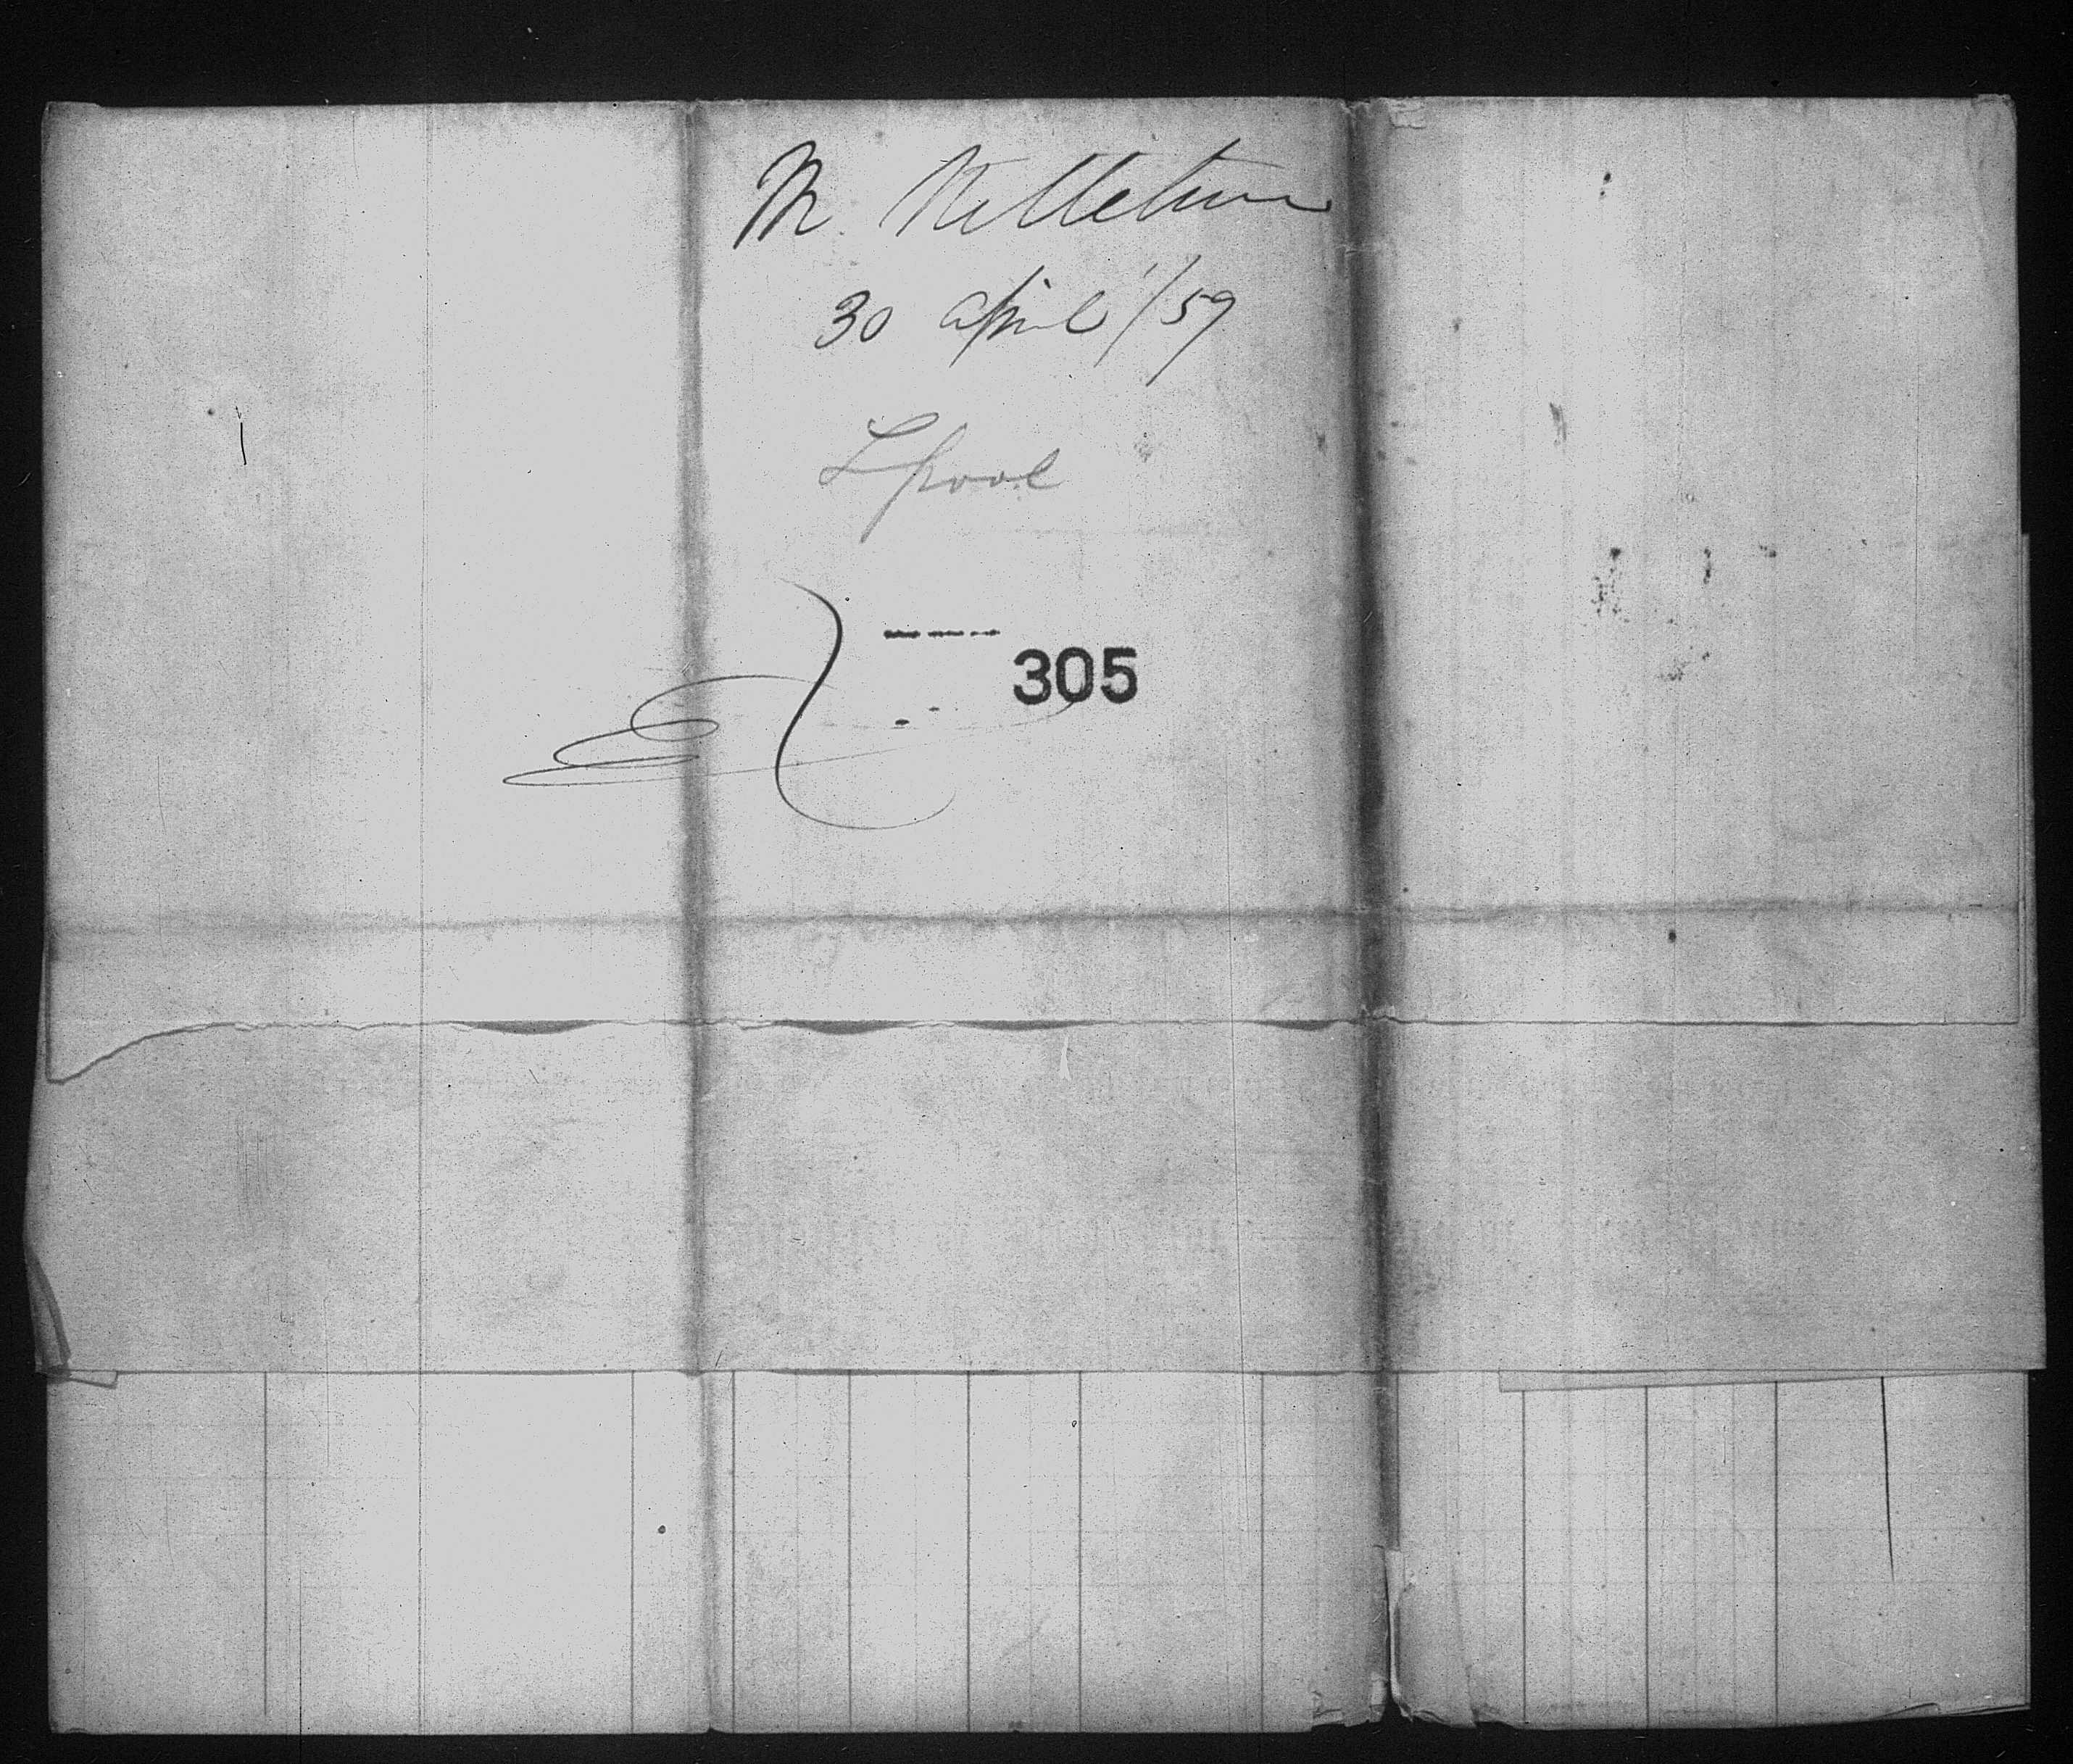 M. Nettleton
30 april '/59
Lpool
305